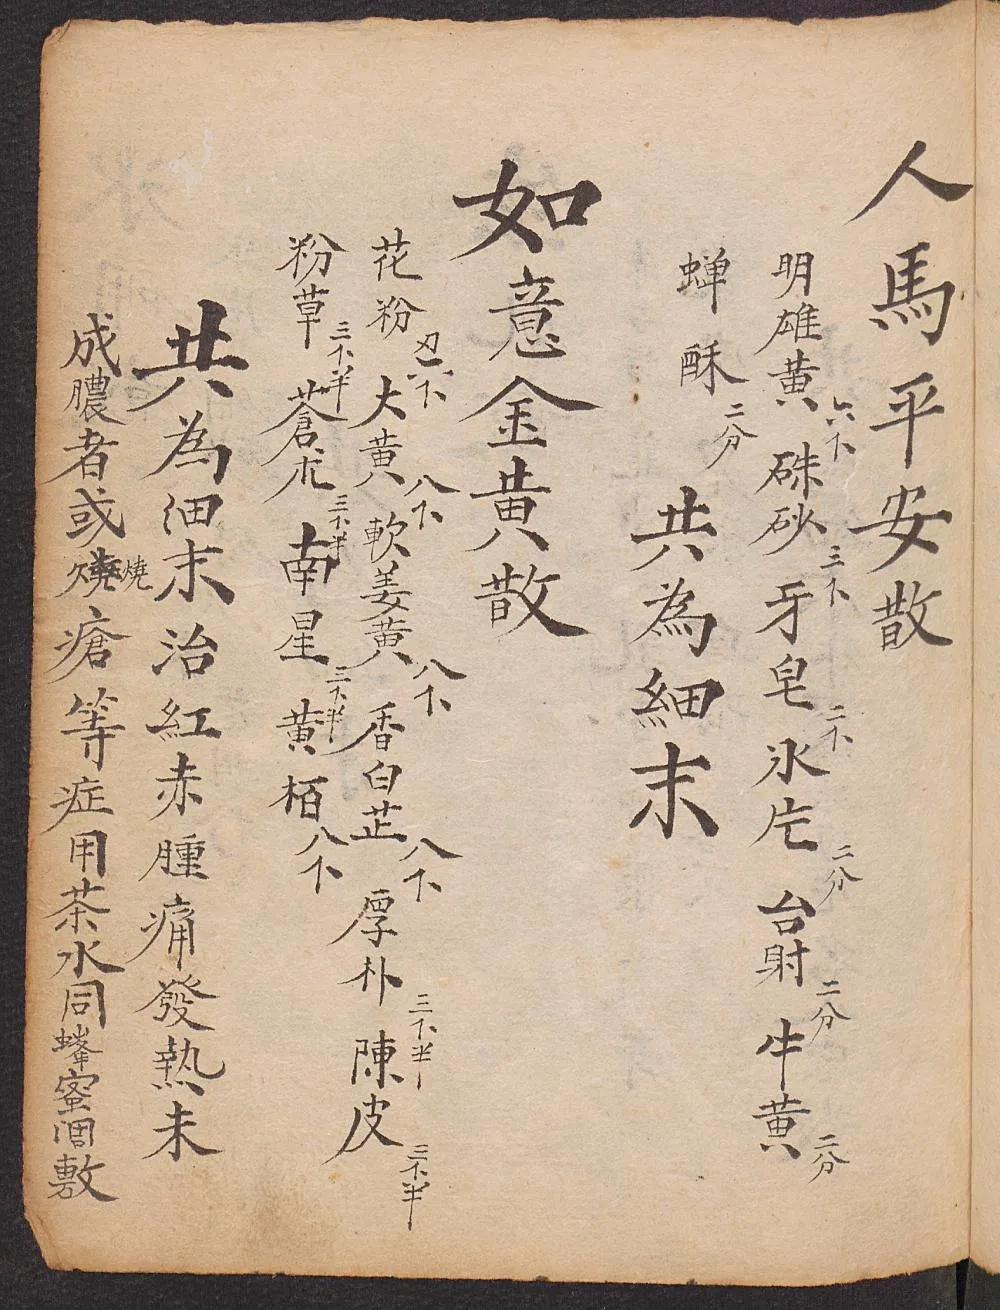 人馬平安散
明雄黃六下 硃砂三下 牙皂二下 氷片二分 台射二分 牛黃二分
蝉酥二分 共為細末
如意金黃散
花粉 大黃八下 軟姜黃八下 香白芷八下 厚朴三下半 陳皮三下半
粉草三下半 蒼朮三下半 南星三下半 黃栢八下
共為细末治紅赤腫痛發熱未
成膿者或燒燒瘡等症用茶水同蜂蜜敷